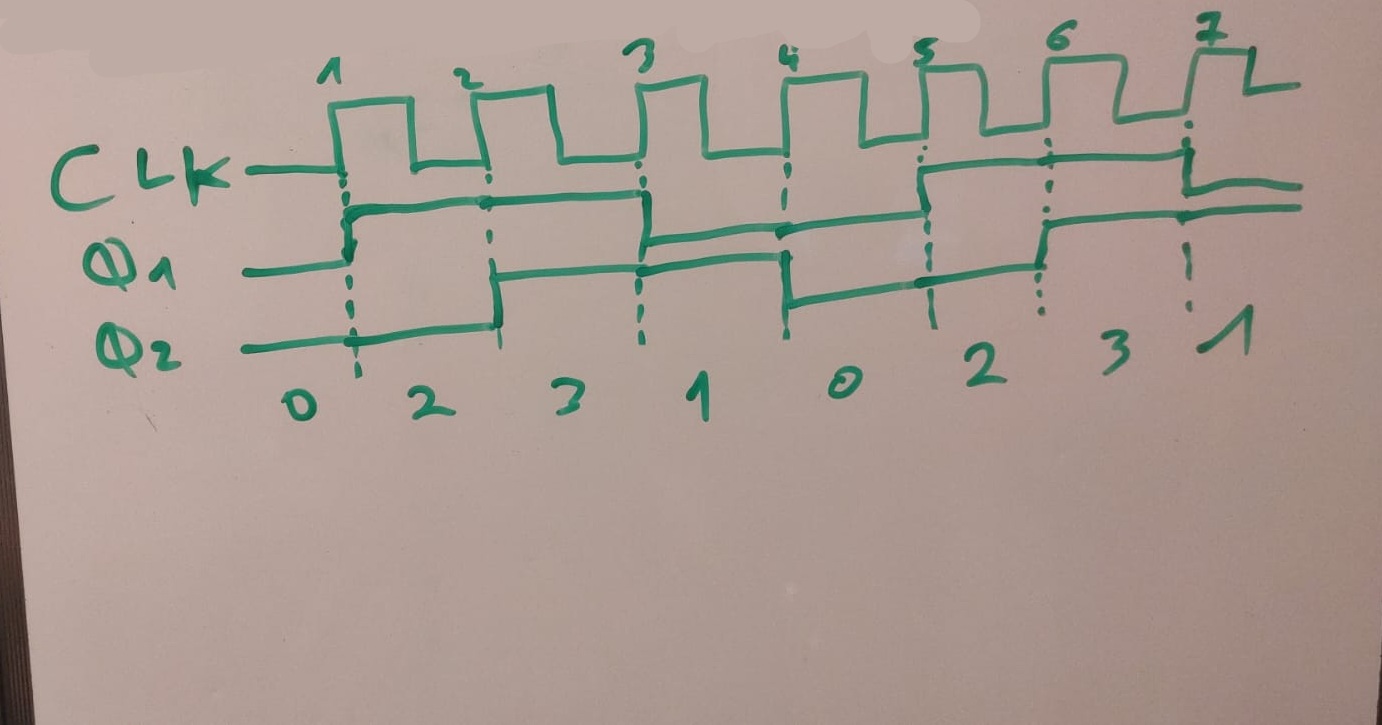 1 2 3 4 5 6 7
CLK
Q1
Q2
0 2 3 1 0 2 3 1